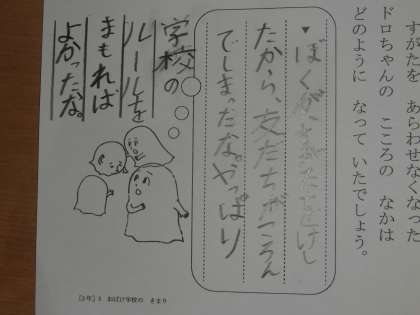 すがたを あらわせなくなった
ドロちゃんの こころの なかは
どのように なって いたでしょう。
▼ぼくが、すがたをけし
たから、友だちがころん
でしまっただな。やっぱり
学校の
ルールを
まもれば
よかったな。
[2年] 3 おばけ学校の きまり